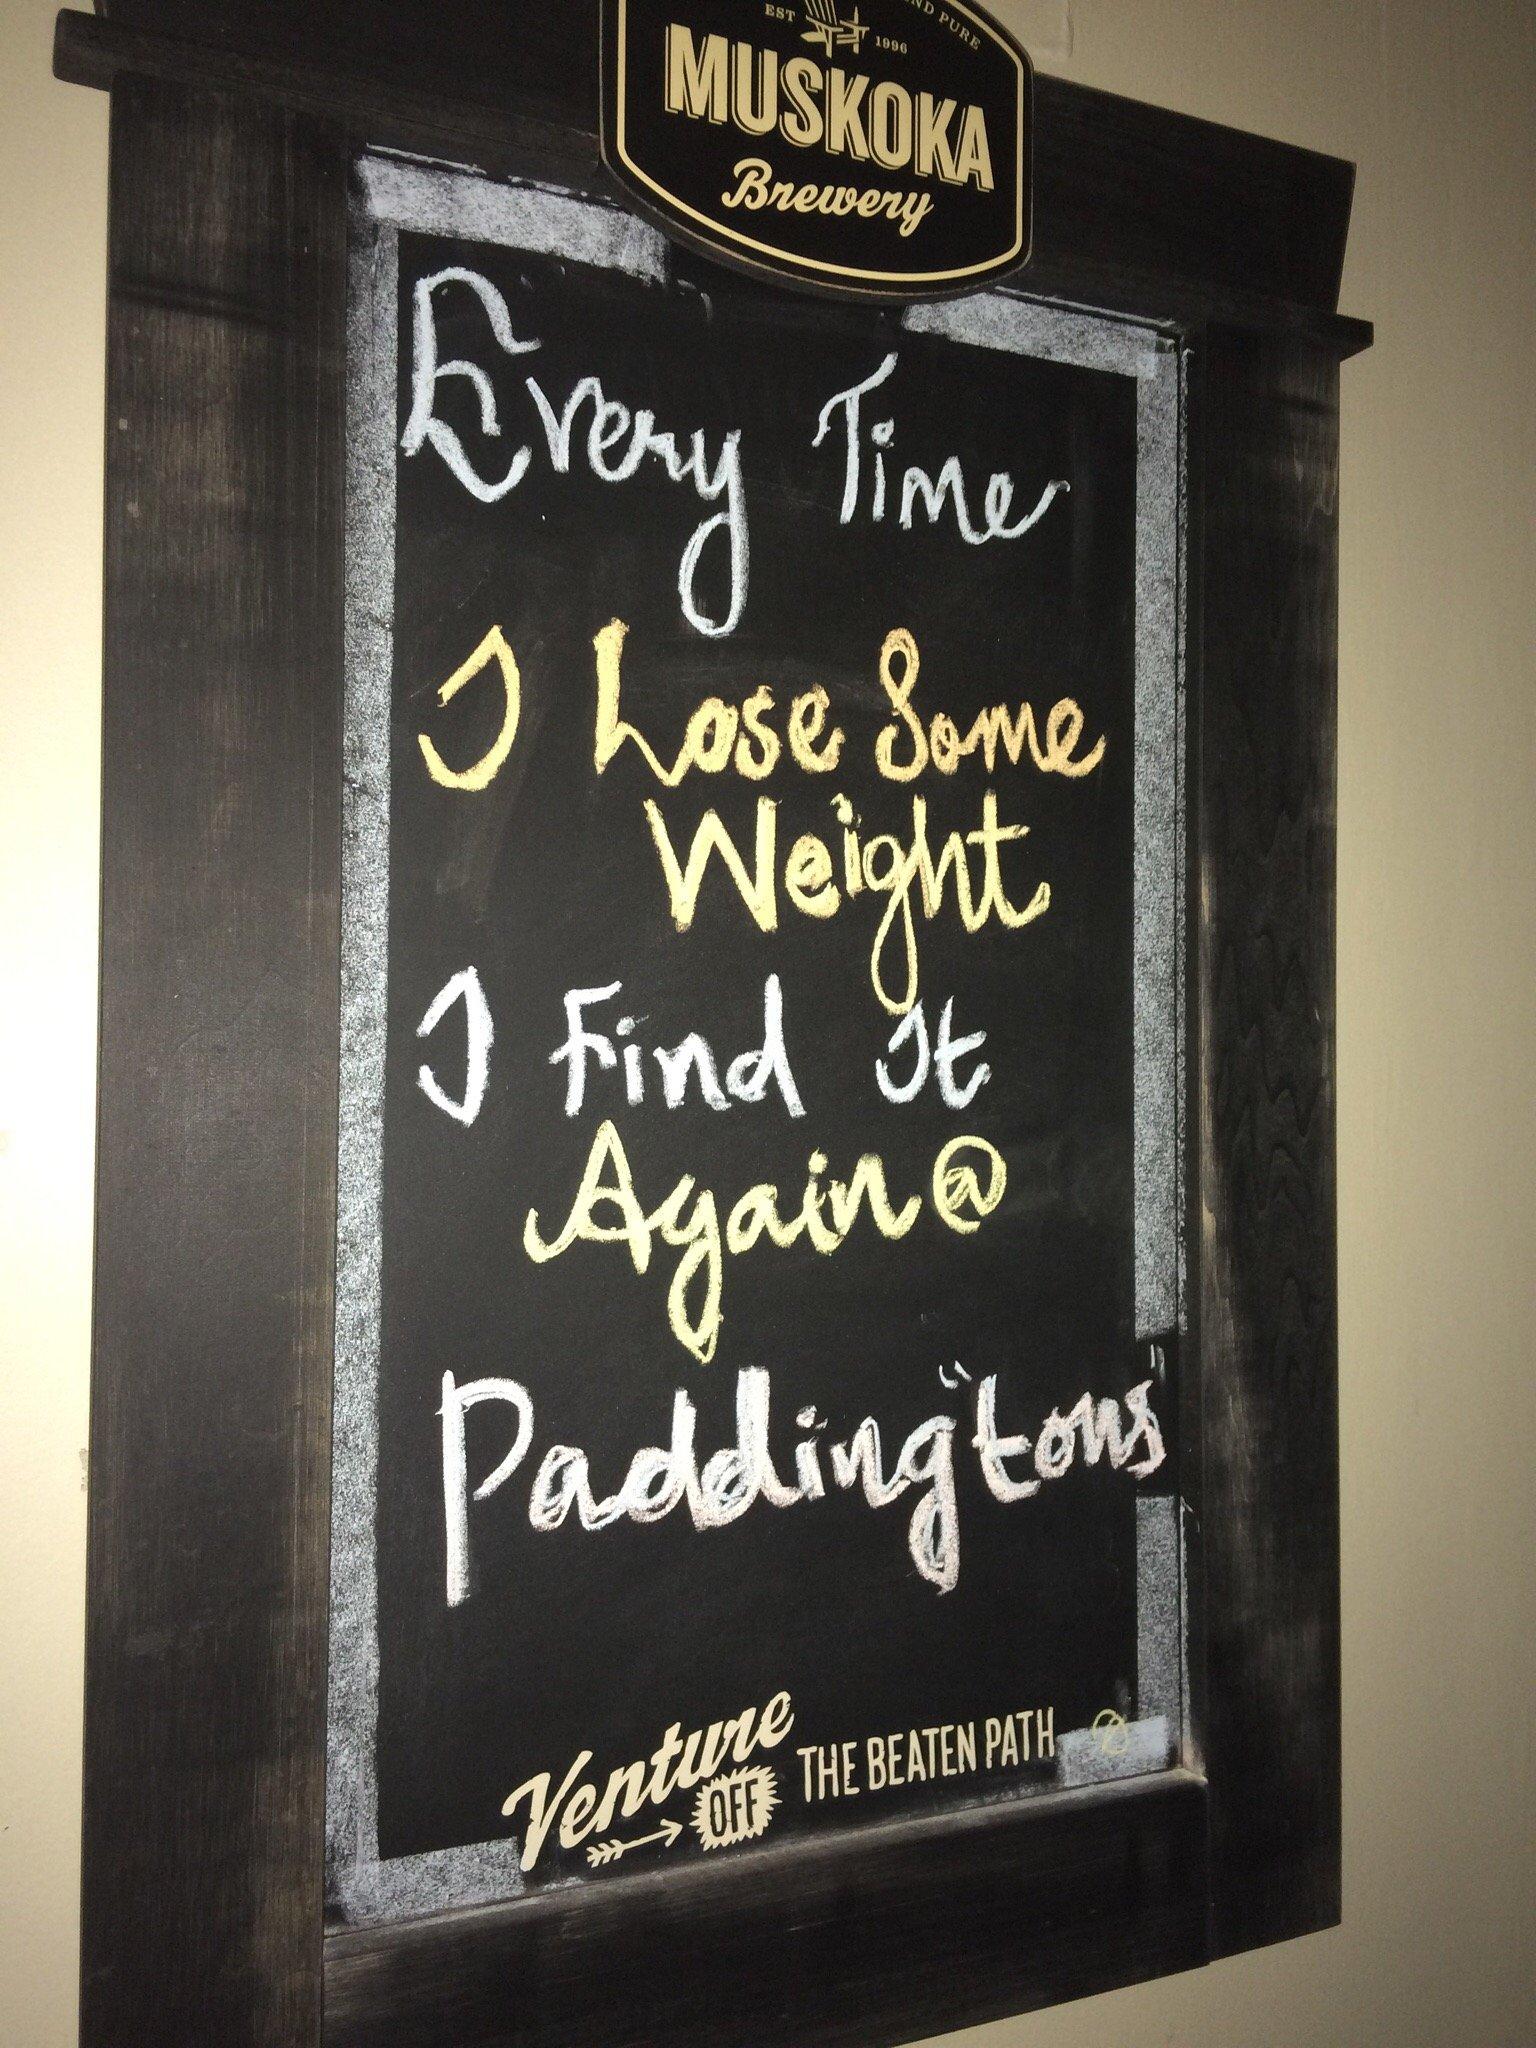 ND PURE
EST 1996
MUSKOKA
Brewery
Every Time
I Lose Some
Weight
I Find It
Again @
Padding "tons"
Venture OFF THE BEATEN PATH